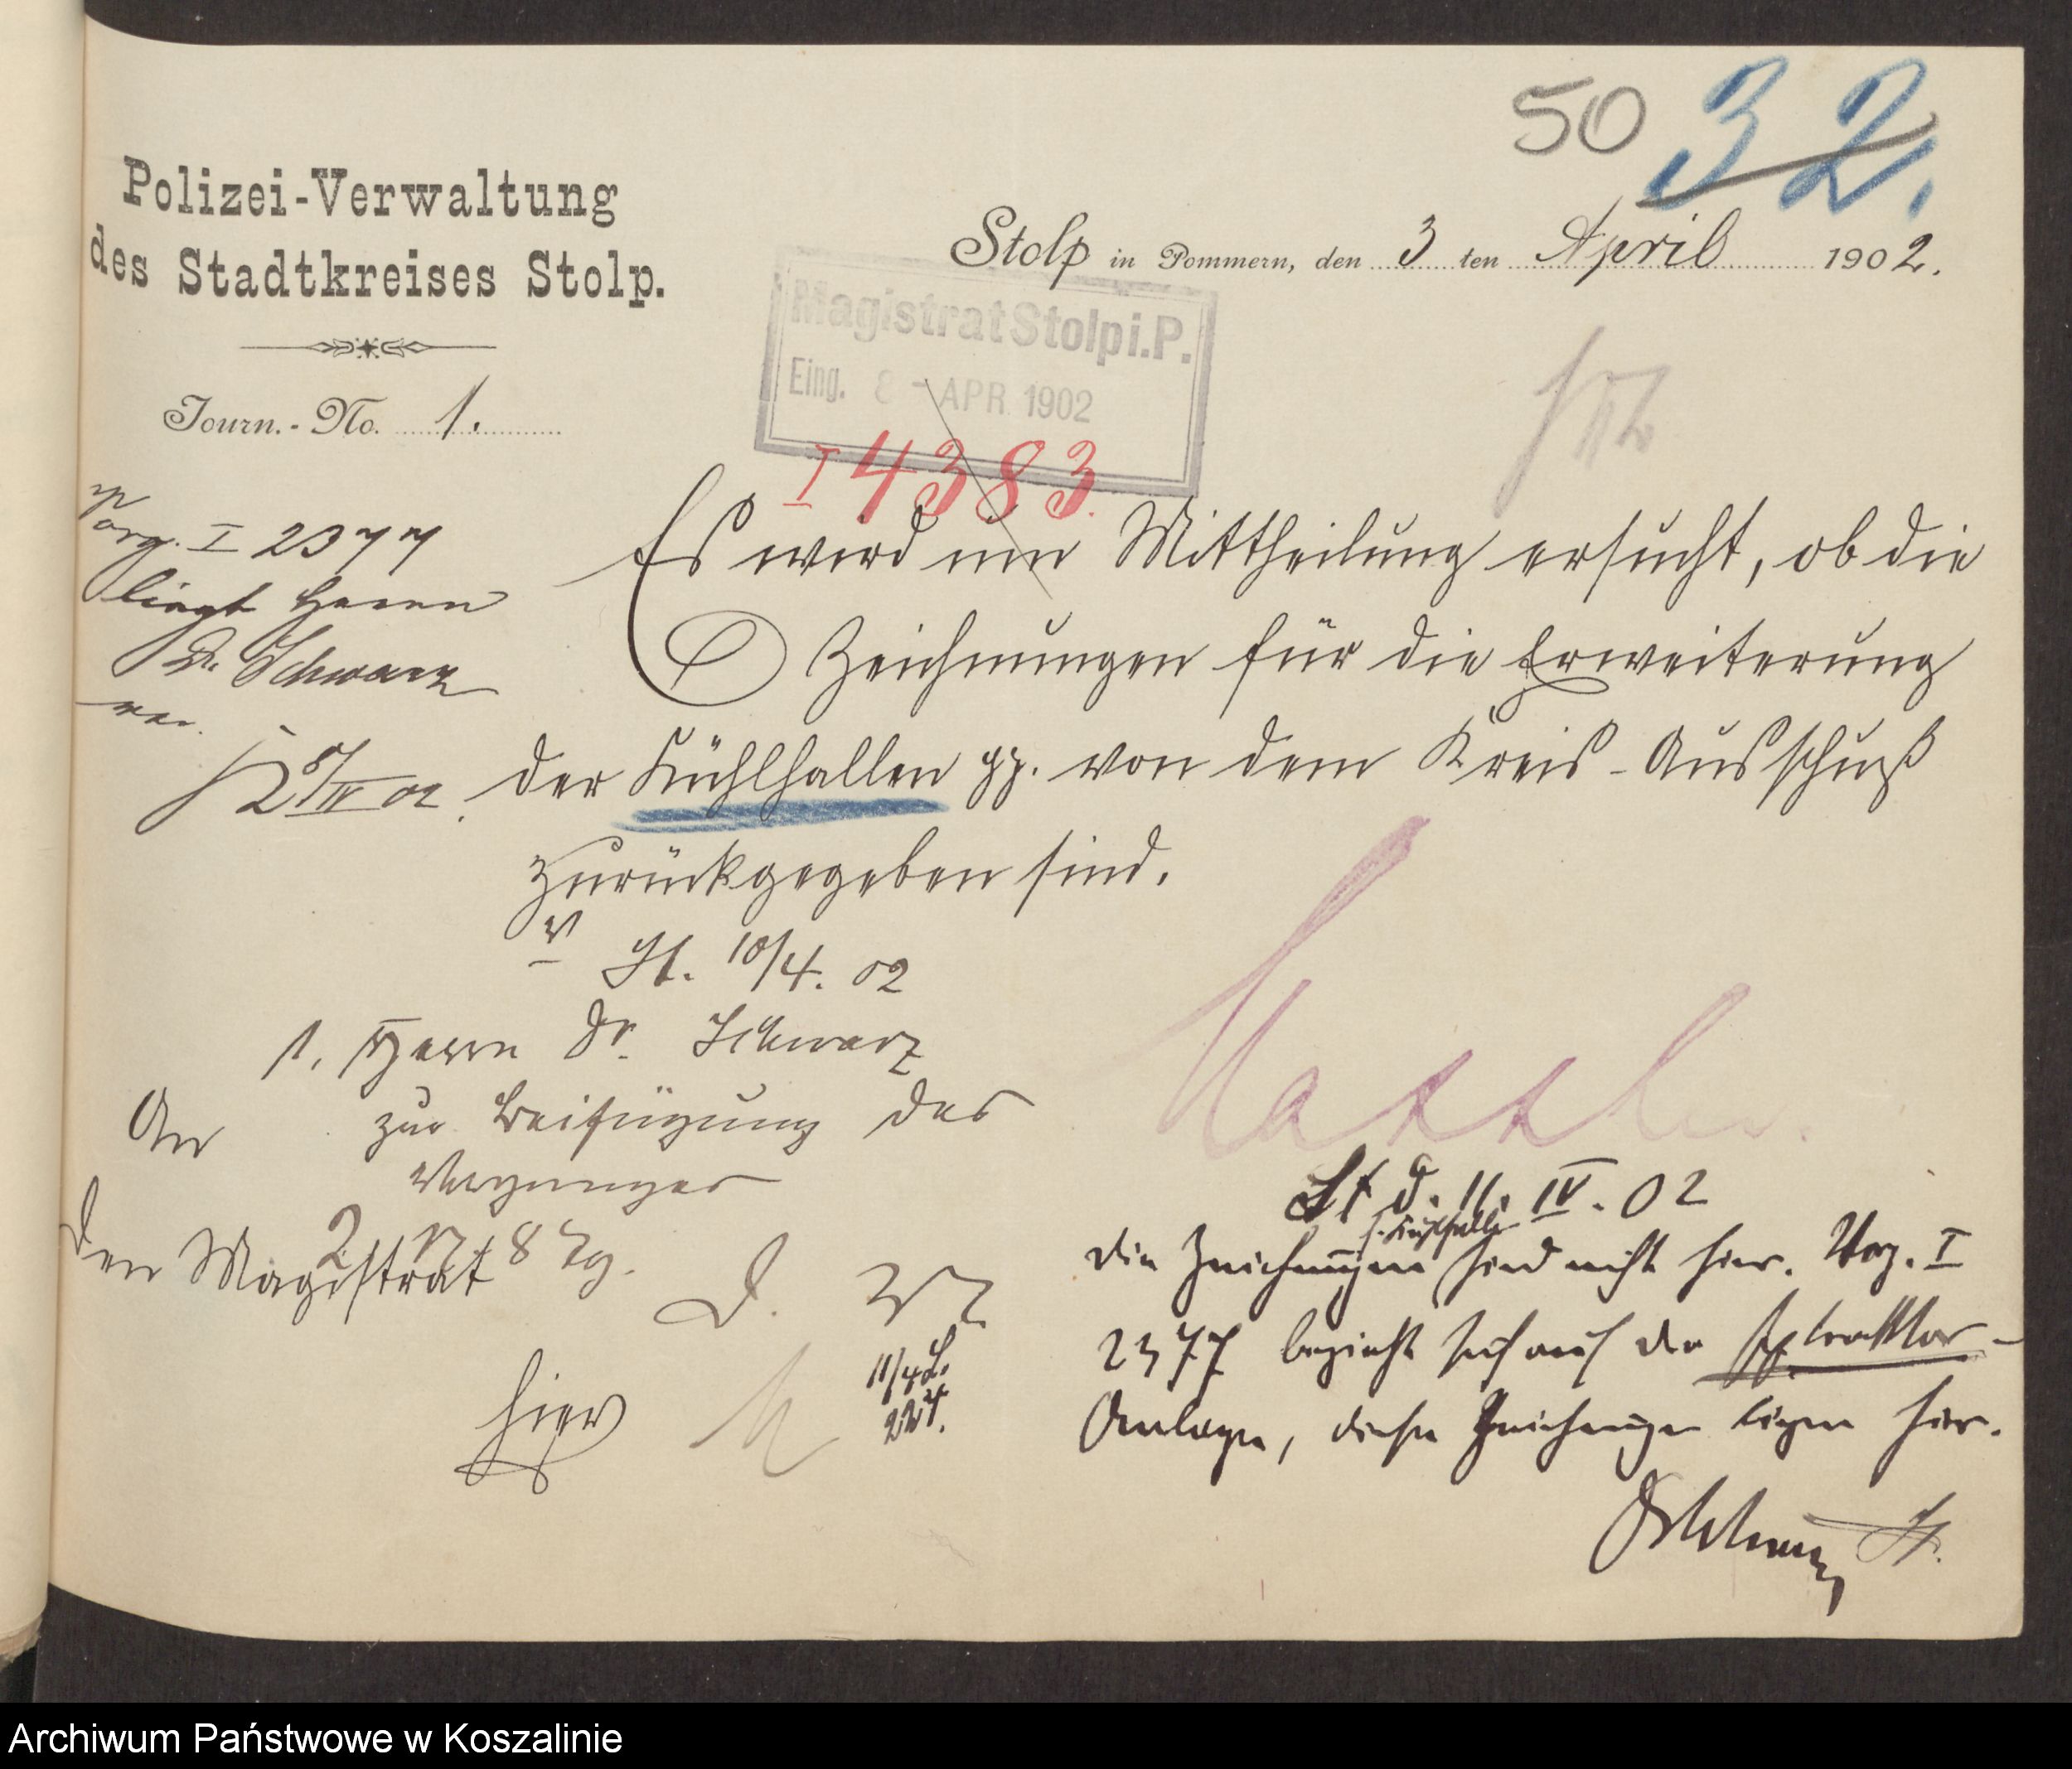 50 32.
Polizei-Verwaltung
des Stadtkreises Stolp.
Stolp in Pommern, den 3 ten April 1902.
Magistrat Stolp i. P.
Eing. 8 - APR 1902
I 4383.
Journ.-No. 1.
Vorg. I 2377
liegt Herrn
Dr. Schwarz
vor.
8/IV 02.
Es wird um Mittheilung ersucht, ob die
Zeichnungen für die Erweiterung
der Kühlhallen pp. von dem Kreis-Ausschuß
zurückgegeben sind.
V
St. 10/4. 02
1. Herrn Dr. Schwarz
zur Beifügung des
Vorganges
2. n 8 Tg.
D. M.
11/4
An
den Magistrat
hier
St d. 11. IV. 02
Die Zeichnungen f. Kühlhalle sind nicht hier. Vorg. I
2377 bezieht sich auf die
Anlage, diese Zeichnungen liegen hier.
Schwarz
Archiwum Państwowe w Koszalinie